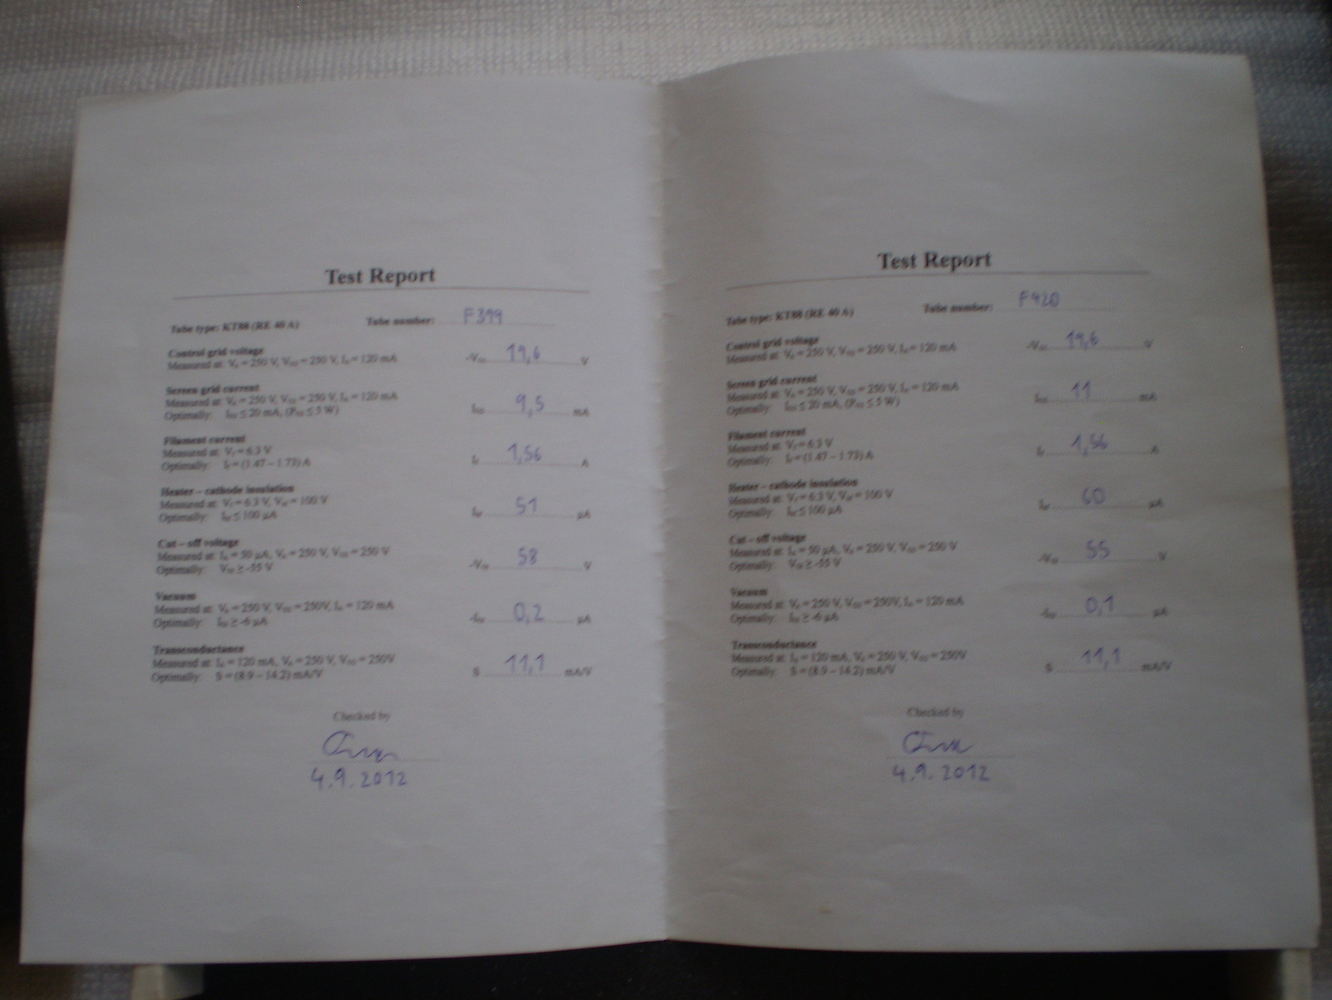 Test Report
Tube type: KT88 (RE 40 A) Tube number: F399
Control grid voltage
Measured at: Vₐ = 250 V, V_G2 = 250 V, Iₐ = 120 mA -V_G1 19,6 V
Screen grid current
Measured at: Vₐ = 250 V, V_G2 = 250 V, Iₐ = 120 mA
Optimally: I_G2 ≤ 20 mA, (P_G2 ≤ 5 W) I_G2 9,5 mA
Filament current
Measured at: V_f = 6.3 V
Optimally: I_f = (1.47 – 1.73) A I_f 1,56 A
Heater – cathode insulation
Measured at: V_f = 6.3 V, 100 V
Optimally: ≤ 100 µA 51 µA
Cut – off voltage
Measured at: Iₐ = 50 µA, Vₐ = 250 V, V_G2 = 250 V
Optimally: V_G1 ≥ -55 V -V_G1 58 V
Vacuum
Measured at: Vₐ = 250 V, V_G2 = 250V, Iₐ = 120 mA
Optimally: I_G1 ≥ -6 µA -I_G1 0,2 µA
Transconductance
Measured at: Iₐ = 120 mA, Vₐ = 250 V, V_G2 = 250V
Optimally: S = (8.9 – 14.2) mA/V S 11,1 mA/V
Checked by
4.9.2012
Test Report
Tube type: KT88 (RE 40 A) Tube number: F420
Control grid voltage
Measured at: Vₐ = 250 V, V_G2 = 250 V, Iₐ = 120 mA -V_G1 19,6 V
Screen grid current
Measured at: Vₐ = 250 V, V_G2 = 250 V, Iₐ = 120 mA
Optimally: I_G2 ≤ 20 mA, (P_G2 ≤ 5 W) I_G2 11 mA
Filament current
Measured at: V_f = 6.3 V
Optimally: I_f = (1.47 – 1.73) A I_f 1,56 A
Heater – cathode insulation
Measured at: V_f = 6.3 V, 100 V
Optimally: ≤ 100 µA 60 µA
Cut – off voltage
Measured at: Iₐ = 50 µA, Vₐ = 250 V, V_G2 = 250 V
Optimally: V_G1 ≥ -55 V -V_G1 55 V
Vacuum
Measured at: Vₐ = 250 V, V_G2 = 250V, Iₐ = 120 mA
Optimally: I_G1 ≥ -6 µA -I_G1 0,1 µA
Transconductance
Measured at: Iₐ = 120 mA, Vₐ = 250 V, V_G2 = 250V
Optimally: S = (8.9 – 14.2) mA/V S 11,1 mA/V
Checked by
4.9.2012